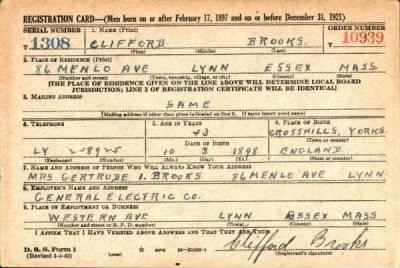 REGISTRATION CARD—(Men born on or after February 17, 1897 and on or before December 31, 1921)
SERIAL NUMBER 1. NAME (Print) ORDER NUMBER
T 1308 CLIFFORD BROOKS. T 10939
(First) (Middle) (Last)
2. PLACE OF RESIDENCE (Print)
86 MENLO AVE LYNN ESSEX MASS
(Number and street) (Town, township, village, or city) (County) (State)
[THE PLACE OF RESIDENCE GIVEN ON THE LINE ABOVE WILL DETERMINE LOCAL BOARD
JURISDICTION; LINE 2 OF REGISTRATION CERTIFICATE WILL BE IDENTICAL]
3. MAILING ADDRESS
SAME
[Mailing address if other than place indicated on line 2. If same insert word same]
4. TELEPHONE 5. AGE IN YEARS 6. PLACE OF BIRTH
43 CROSSHILLS, YORKS.
DATE OF BIRTH (Town or county)
LY 2-8925 10 3 1898 ENGLAND.
(Exchange) (Number) (Mo.) (Day) (Yr.) (State or country)
7. NAME AND ADDRESS OF PERSON WHO WILL ALWAYS KNOW YOUR ADDRESS
MRS GERTRUDE I. BROOKS 86 MENLO AVE LYNN
8. EMPLOYER'S NAME AND ADDRESS
GENERAL ELECTRIC CO.
9. PLACE OF EMPLOYMENT OR BUSINESS
WESTERN AVE LYNN ESSEX MASS
(Number and street or R. F. D. number) (Town) (County) (State)
I AFFIRM THAT I HAVE VERIFIED ABOVE ANSWERS AND THAT THEY ARE TRUE.
D. S. S. Form 1
(Revised 1-1-42) Clifford Brooks
(Registrant's signature)